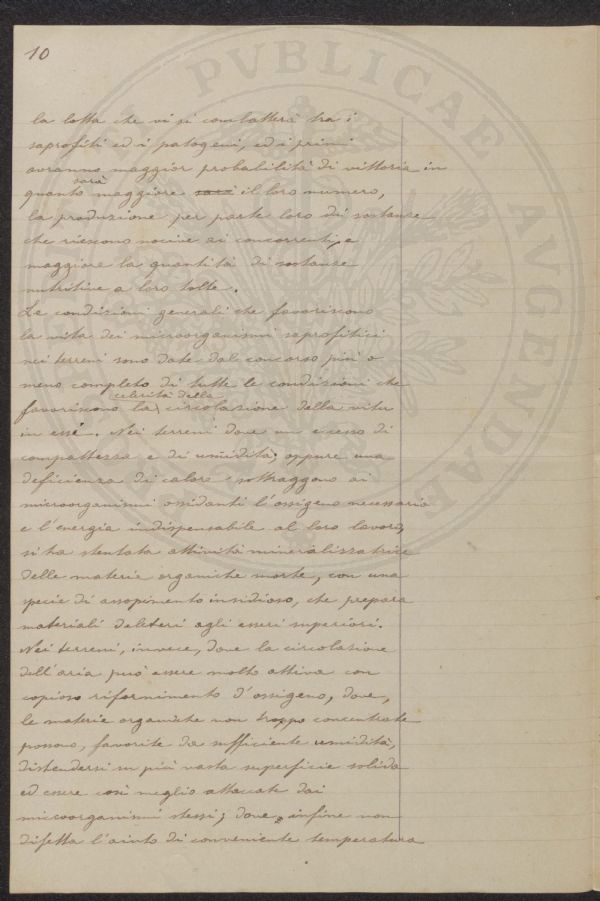 10
la lotta che vi si combatterà tra i
saprofiti ed i patogeni, ed i primi
avranno maggior probabilità di vittoria in
sarà
quanto maggiore sarà il loro numero,
la produzione per parte loro di sostanze
che riescono nocive ai concorrenti, e
maggiore la quantità di sostanze
nutritive a loro tolte.
Le condizioni generali che favoriscono
la vita dei microorganismi saprofitici
nei terreni sono date dal concorso più o
meno completo di tutte le condizioni che
celerità della
favoriscono la circolazione della vita
in essi. Nei terreni dove un eccesso di
compattezza e di umidità, oppure una
deficienza di calore sottraggono ai
microorganismi ossidanti l'ossigeno necessario
e l'energia indispensabile al loro lavoro,
si ha stentata attività mineralizzatrice
delle materie organiche morte, con una
specie di assopimento insidioso, che prepara
materiali deleteri agli esseri superiori.
Nei terreni, invece, dove la circolazione
dell'aria può essere molto attiva con
copioso rifornimento d'ossigeno, dove,
le materie organiche non troppo concentrate
possono, favorite da sufficiente umidità,
distendersi in più vasta superficie solida
ed essere così meglio attaccate dai
microorganismi stessi; dove, infine non
difetta l'aiuto di conveniente temperatura
PVBLICAE
AVGENDAE